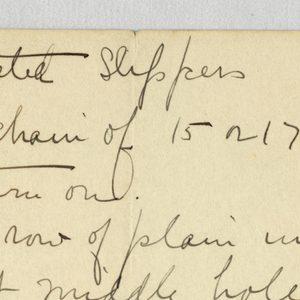 Slippers
chain of 15 or 17
on.
row of plain
middle hole